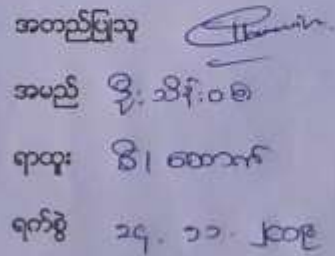 အတည်ပြုသူ
အမည် ဦးသိန်းဝေ
ရာထူး ဒီ၊ ထောက်
ရက်စွဲ ၁၄. ၁၁. ၂၀၀၉